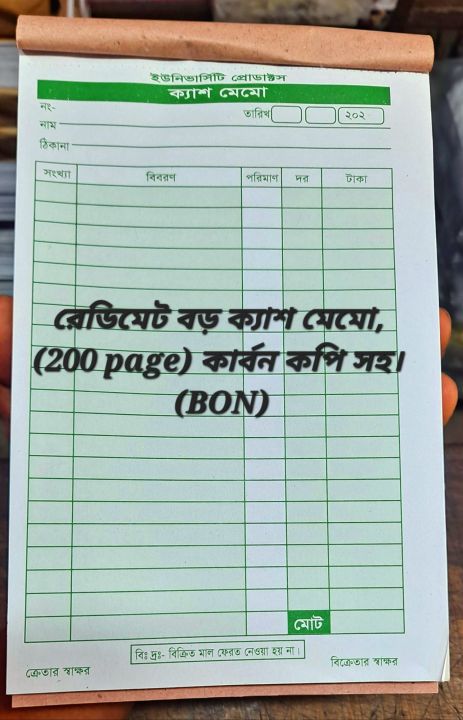 ইউনিভার্সিটি প্রোডাক্টস
ক্যাশ মেমো
নং-
তারিখ ২০২
নাম
ঠিকানা
সংখ্যা বিবরণ পরিমাণ দর টাকা
রেডিমেট বড় ক্যাশ মেমো,
(200 page) কার্বন কপি সহ।
(BON)
মোট
বিঃ দ্রঃ- বিক্রিত মাল ফেরত নেওয়া হয় না।
ক্রেতার স্বাক্ষর বিক্রেতার স্বাক্ষর